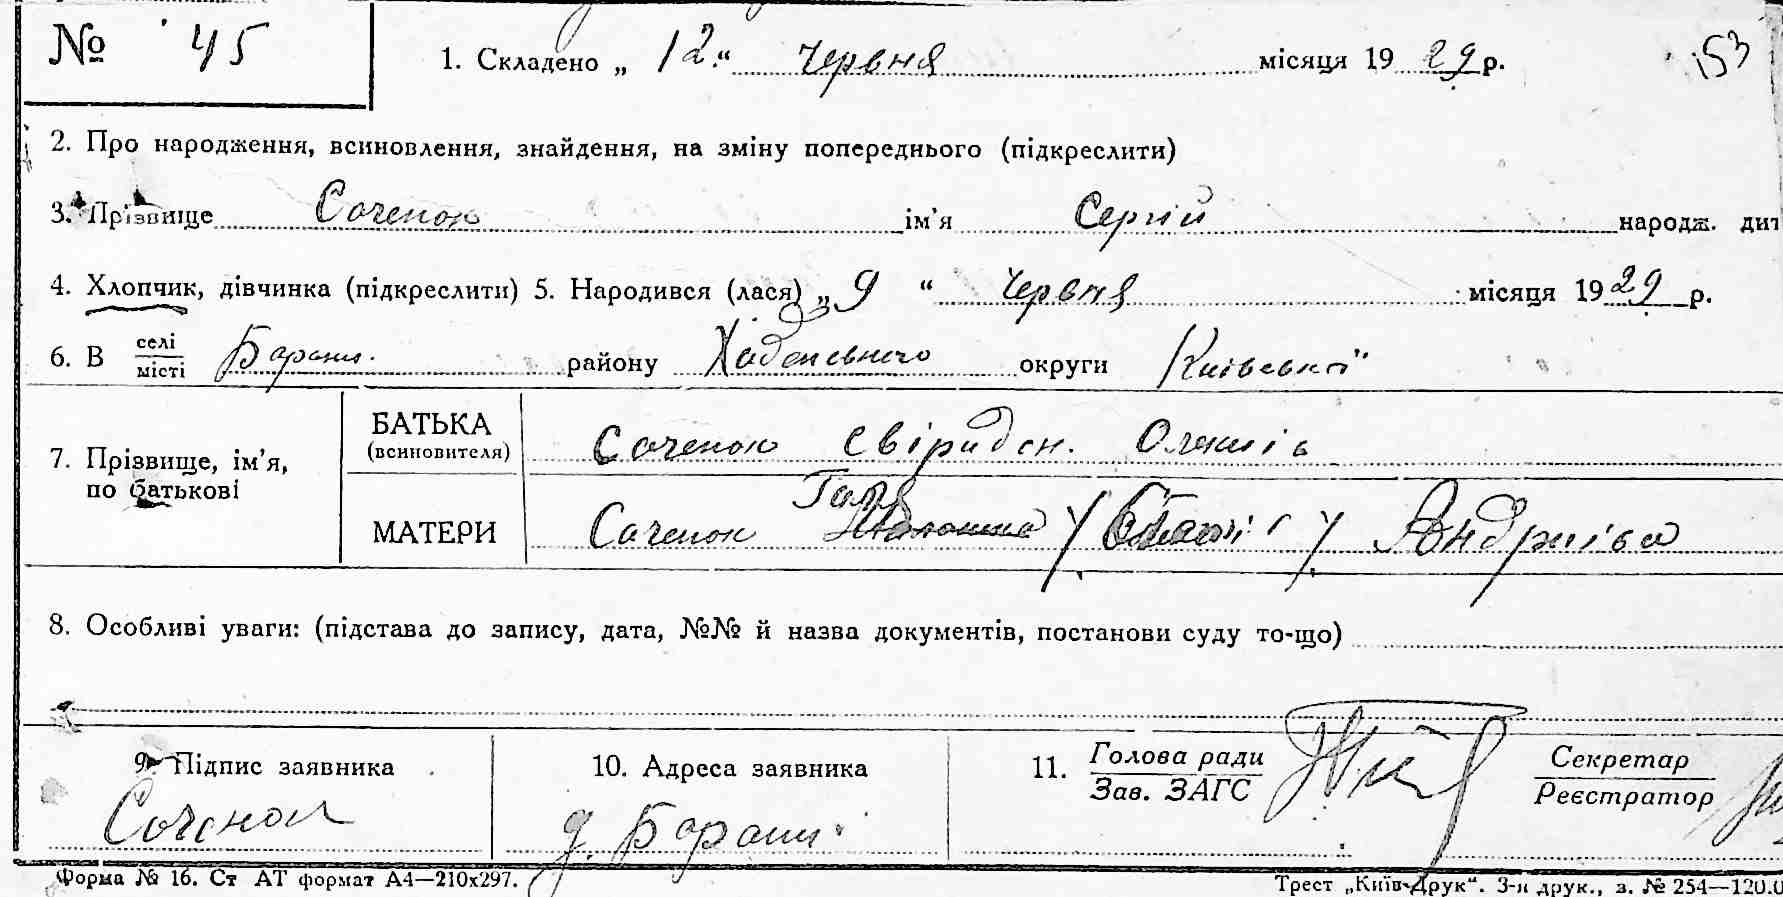 № 45
1. Складено „ 12 “ червня місяця 19 29 р.
153
2. Про народження, всиновлення, знайдення, на зміну попереднього (підкреслити)
3. Прізвище Соченок ім’я Сергій народж. дит
4. Хлопчик, дівчинка (підкреслити) 5. Народився (лася) „ 9 “ червня місяця 19 29 р.
6. В селі/місті Барани району округи Київської
7. Прізвище, ім’я, по батькові
БАТЬКА (всиновителя) Соченок Свіридон
МАТЕРИ Соченок Галя Андриіва
8. Особливі уваги: (підстава до запису, дата, №№ й назва документів, постанови суду то-що)
9. Підпис заявника
Соченок
10. Адреса заявника
д. Барани
11. Голова ради / Зав. ЗАГС
Секретар / Реєстратор
Форма № 16. Ст АТ формат А4—210х297.
Трест „Київ-Друк“. 3-я друк., з. № 254—120.0